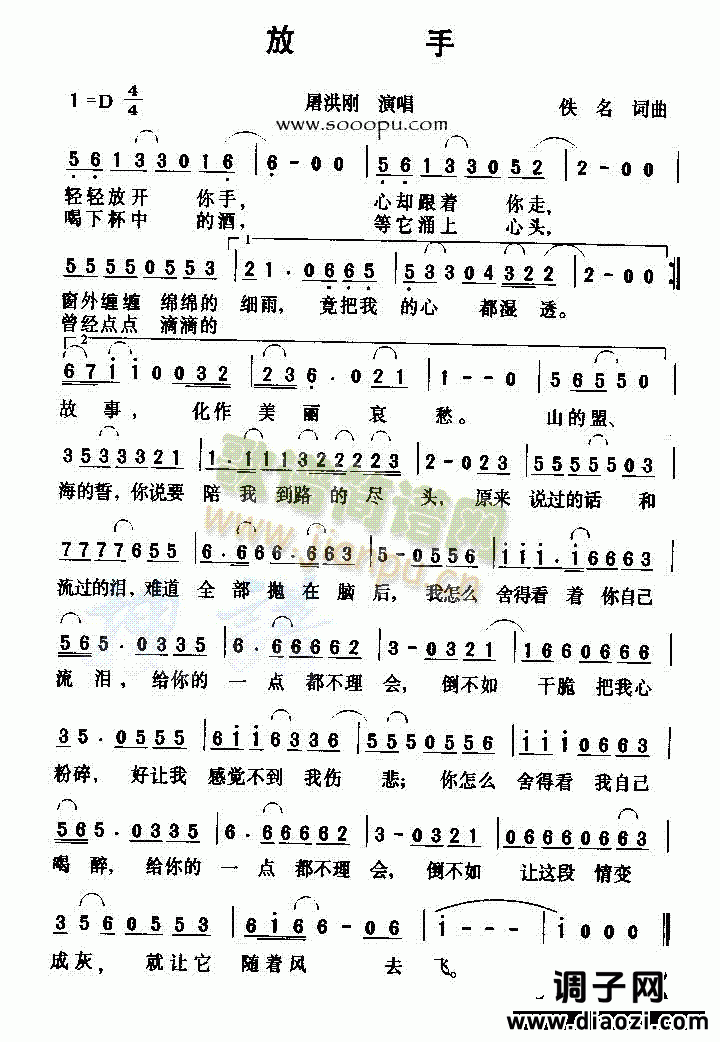 放 手
1=D 4/4 屠洪刚 演唱 佚 名 词曲
www.sooopu.com
5 6 1 3 3 0 1 6 | 6 - 0 0 | 5 6 1 3 3 0 5 2 | 2 - 0 0 |
轻轻放开 你手, 心却跟着 你走,
喝下杯中 的酒, 等它涌上 心头,
1
5 5 5 5 5 0 5 5 5 3 | 2 1 · 0 6 6 5 | 5 3 3 0 4 3 2 2 | 2 - 0 0 :||
窗外缠缠 绵绵的 细雨, 竟把我 的心 都湿 透。
曾经点点 滴滴的
2
6 7 1 1 0 0 3 2 | 2 3 6 · 0 2 1 | 1 - - 0 | 5 6 5 5 0 |
故 事, 化作 美 丽 哀 愁。 山的盟、
3 5 3 3 3 2 1 | 1 · 1 1 1 3 2 2 2 2 2 3 | 2 - 0 2 3 | 5 5 5 5 5 0 3 |
海的誓,你说要 陪 我 到路 的 尽 头, 原来 说过的话 和
7 7 7 7 6 5 5 | 6 · 6 6 6 · 6 6 3 | 5 - 0 5 5 6 | 1 1 1 · 1 6 6 6 3 |
流过的泪,难道 全 部 抛 在 脑 后, 我怎么 舍得看 着 你自己
5 6 5 · 0 3 3 5 | 6 · 6 6 6 6 6 2 | 3 - 0 3 2 1 | 1 6 6 0 6 6 6 3 |
流 泪, 给你的 一 点 都不理 会, 倒不如 干脆 把我心
3 5 · 0 5 5 5 | 6 1 1 6 3 6 3 | 5 5 5 0 5 5 6 | 1 1 1 0 6 6 3 |
粉碎, 好让我 感觉不到 我伤 悲; 你怎么 舍得看 我自己
5 6 5 · 0 3 3 5 | 6 · 6 6 6 6 6 2 | 3 - 0 3 2 1 | 0 6 6 6 0 6 6 3 |
喝 醉, 给你的 一 点 都不理 会, 倒不如 让这段 情变
3 5 6 0 5 5 3 | 6 1 6 6 - 0 6 | 1 - - - | 1 0 0 0 ||
成灰, 就让它 随着风 去 飞。
歌谱简谱网
www.jianpu.cn
调子网
www.diaozi.com